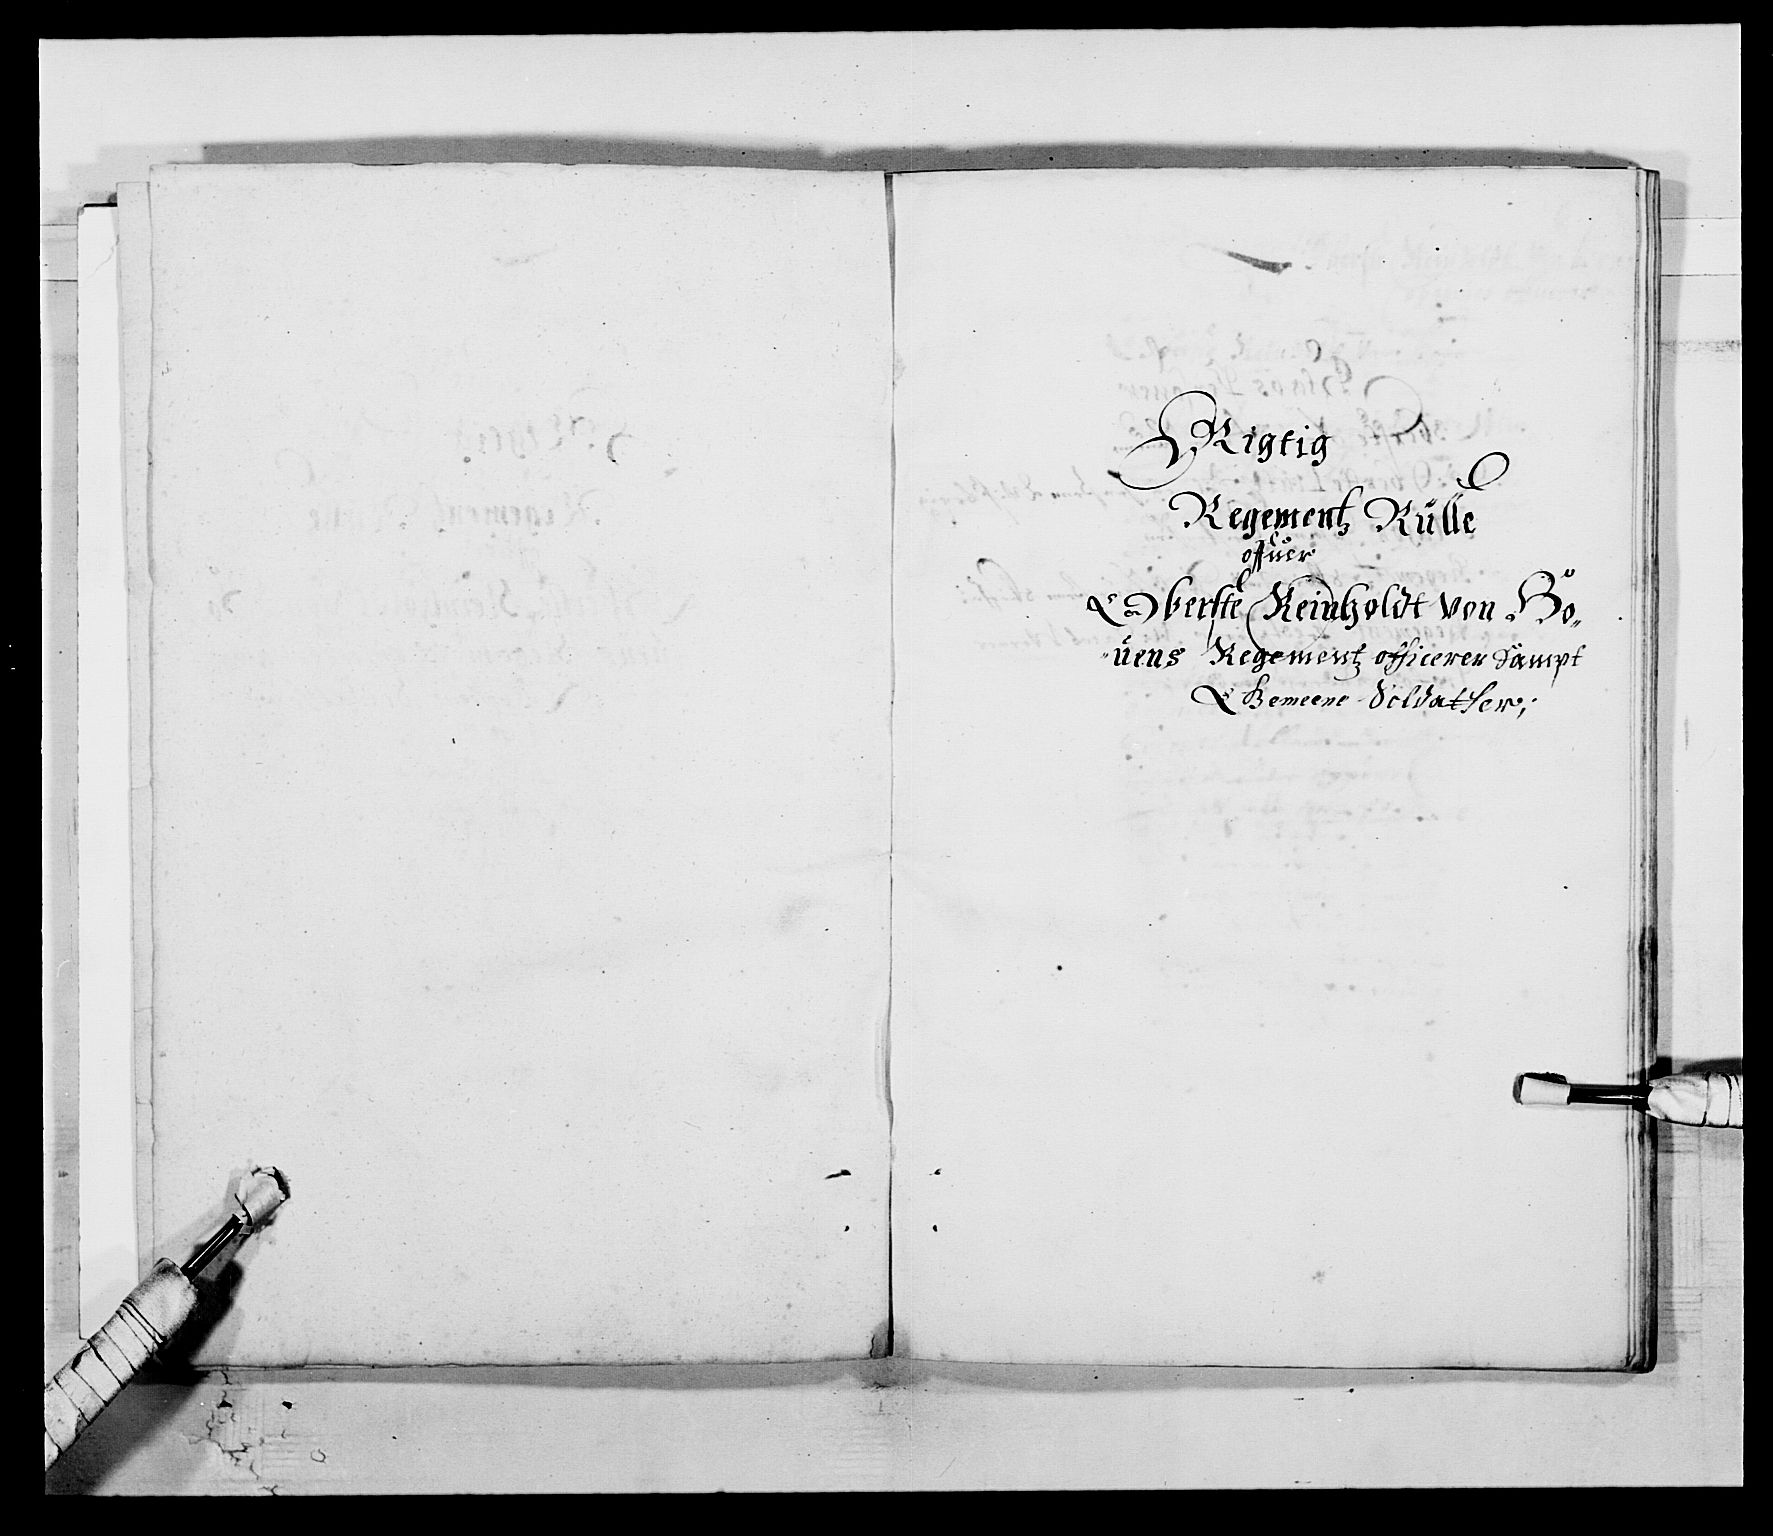 Rigtig
Regementz Rülle
offuer
Oberste Reinholdt von Bö„
„üens Regementz officerer Sampt
Gemeene Soldatter;